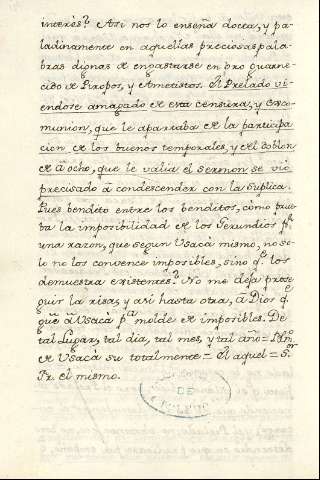 interès? Asi nos lo enseña docta, y pa-
ladinamente en aquellas preciosas pala-
bras dignas de engastarse en oro guarne-
cido de Piropos, y Ametistos. El Prelado vi-
endose amagado de esta censura, y Exco-
munion, que le apartaba de la participa-
cion de los buenos temporales, y del doblon
de à ocho, que le valia el sermon se viò
precisado à condescender con la suplica.
Pues bendito entre los benditos, como prue-
ba la imposibilidad de los Gerundios pr.
una razon, que segun Usacà mismo, no so-
lo no los convence imposibles, sino qe. los
demuestra existentes? No me deja prose-
guir la risa; y asi hasta otra, à Dios qe.
gue. à Usacà pa. molde de imposibles. De
tal Lugar, tal dia, tal mes, y tal año=
de Usacà su totalmente= El aquel= Sor.
Fr. el mismo.
DE